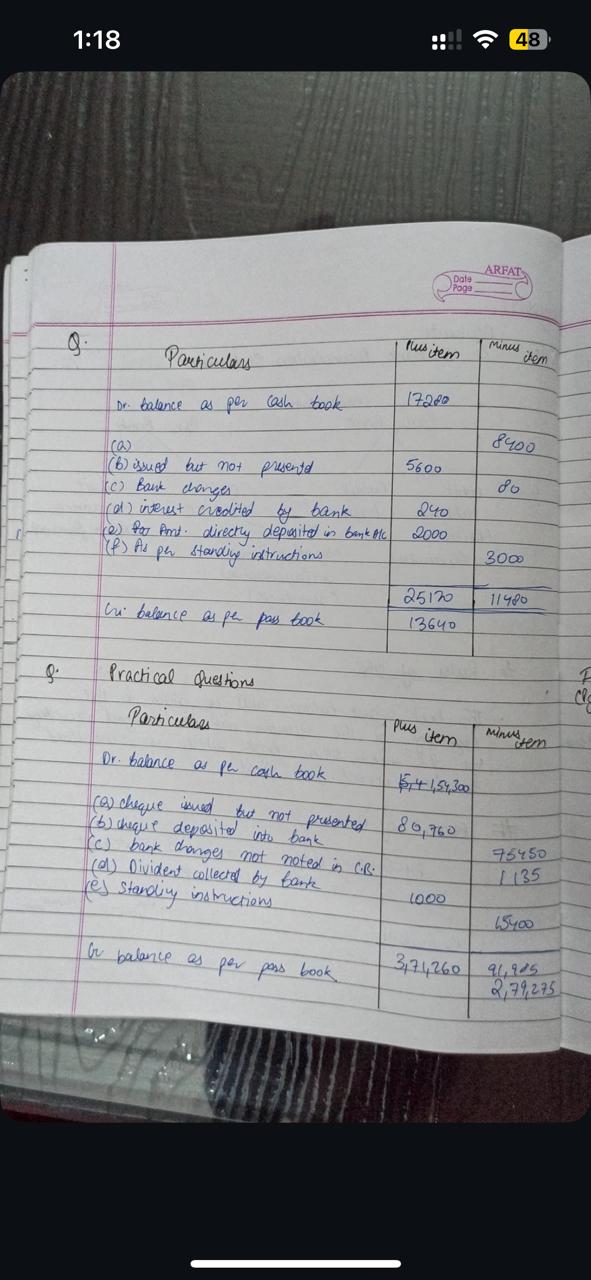 1:18
48
ARFAT
Date
Page
Q. Particulars Plus item Minus item
Dr. balance as per Cash book 17280
(a) 8400
(b) issued but not presentd 5600
(c) Bank changes 80
(d) interest credited by bank 240
(e) Amt. directly deposited in bank A/c 2000
(f) As per standing instructions 3000
25120 11480
Cr. balance as per pass book 13640
Q. Practical Questions
Particulars Plus item Minus item
Dr. balance as per cash book 1,54,300
(a) cheque issued but not presented 80,760
(b) cheque deposited into bank 75450
(c) bank changes not noted in C.B. 1135
(d) Divident collected by bank 1000
(e) Standing instructions 15400
Cr balance as per pass book 3,71,260 91,985
2,79,275